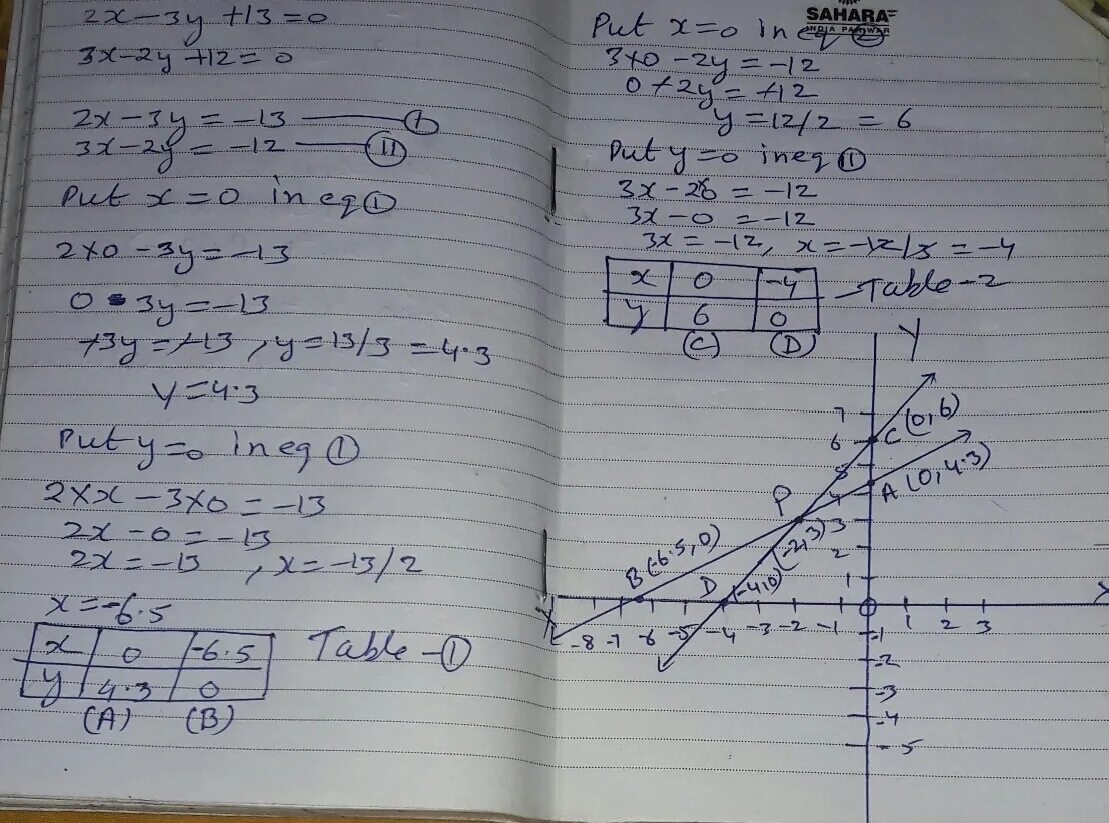 2x-3y+13=0
3x-2y+12=0
2x-3y=-13 — (I)
3x-2y=-12 — (II)
Put x=0 in eq (1)
2×0-3y=-13
0-3y=-13
+3y=+13, y=13/3=4.3
y=4.3
Put y=0 in eq (1)
2×x-3×0=-13
2x-0=-13
2x=-13, x=-13/2
x=-6.5
x 0 -6.5
y 4.3 0
(A) (B)
Table-(1)
SAHARA
INDIA PARIWAR
Put x=0 in eq
3×0-2y=-12
0+2y=+12
y=12/2=6
Put y=0 in eq (11)
3x-2×0=-12
3x-0=-12
3x=-12, x=-12/3=-4
x 0 -4
y 6 0
(C) (D)
Table-2
Y
7
6 C (0,6)
5
4 A (0,4.3)
P 3
(-2,3)
2
B (-6.5,0)
1
D (-4,0)
X
-8 -7 -6 -5 -4 -3 -2 -1 0 1 2 3
-1
-2
-3
-4
-5